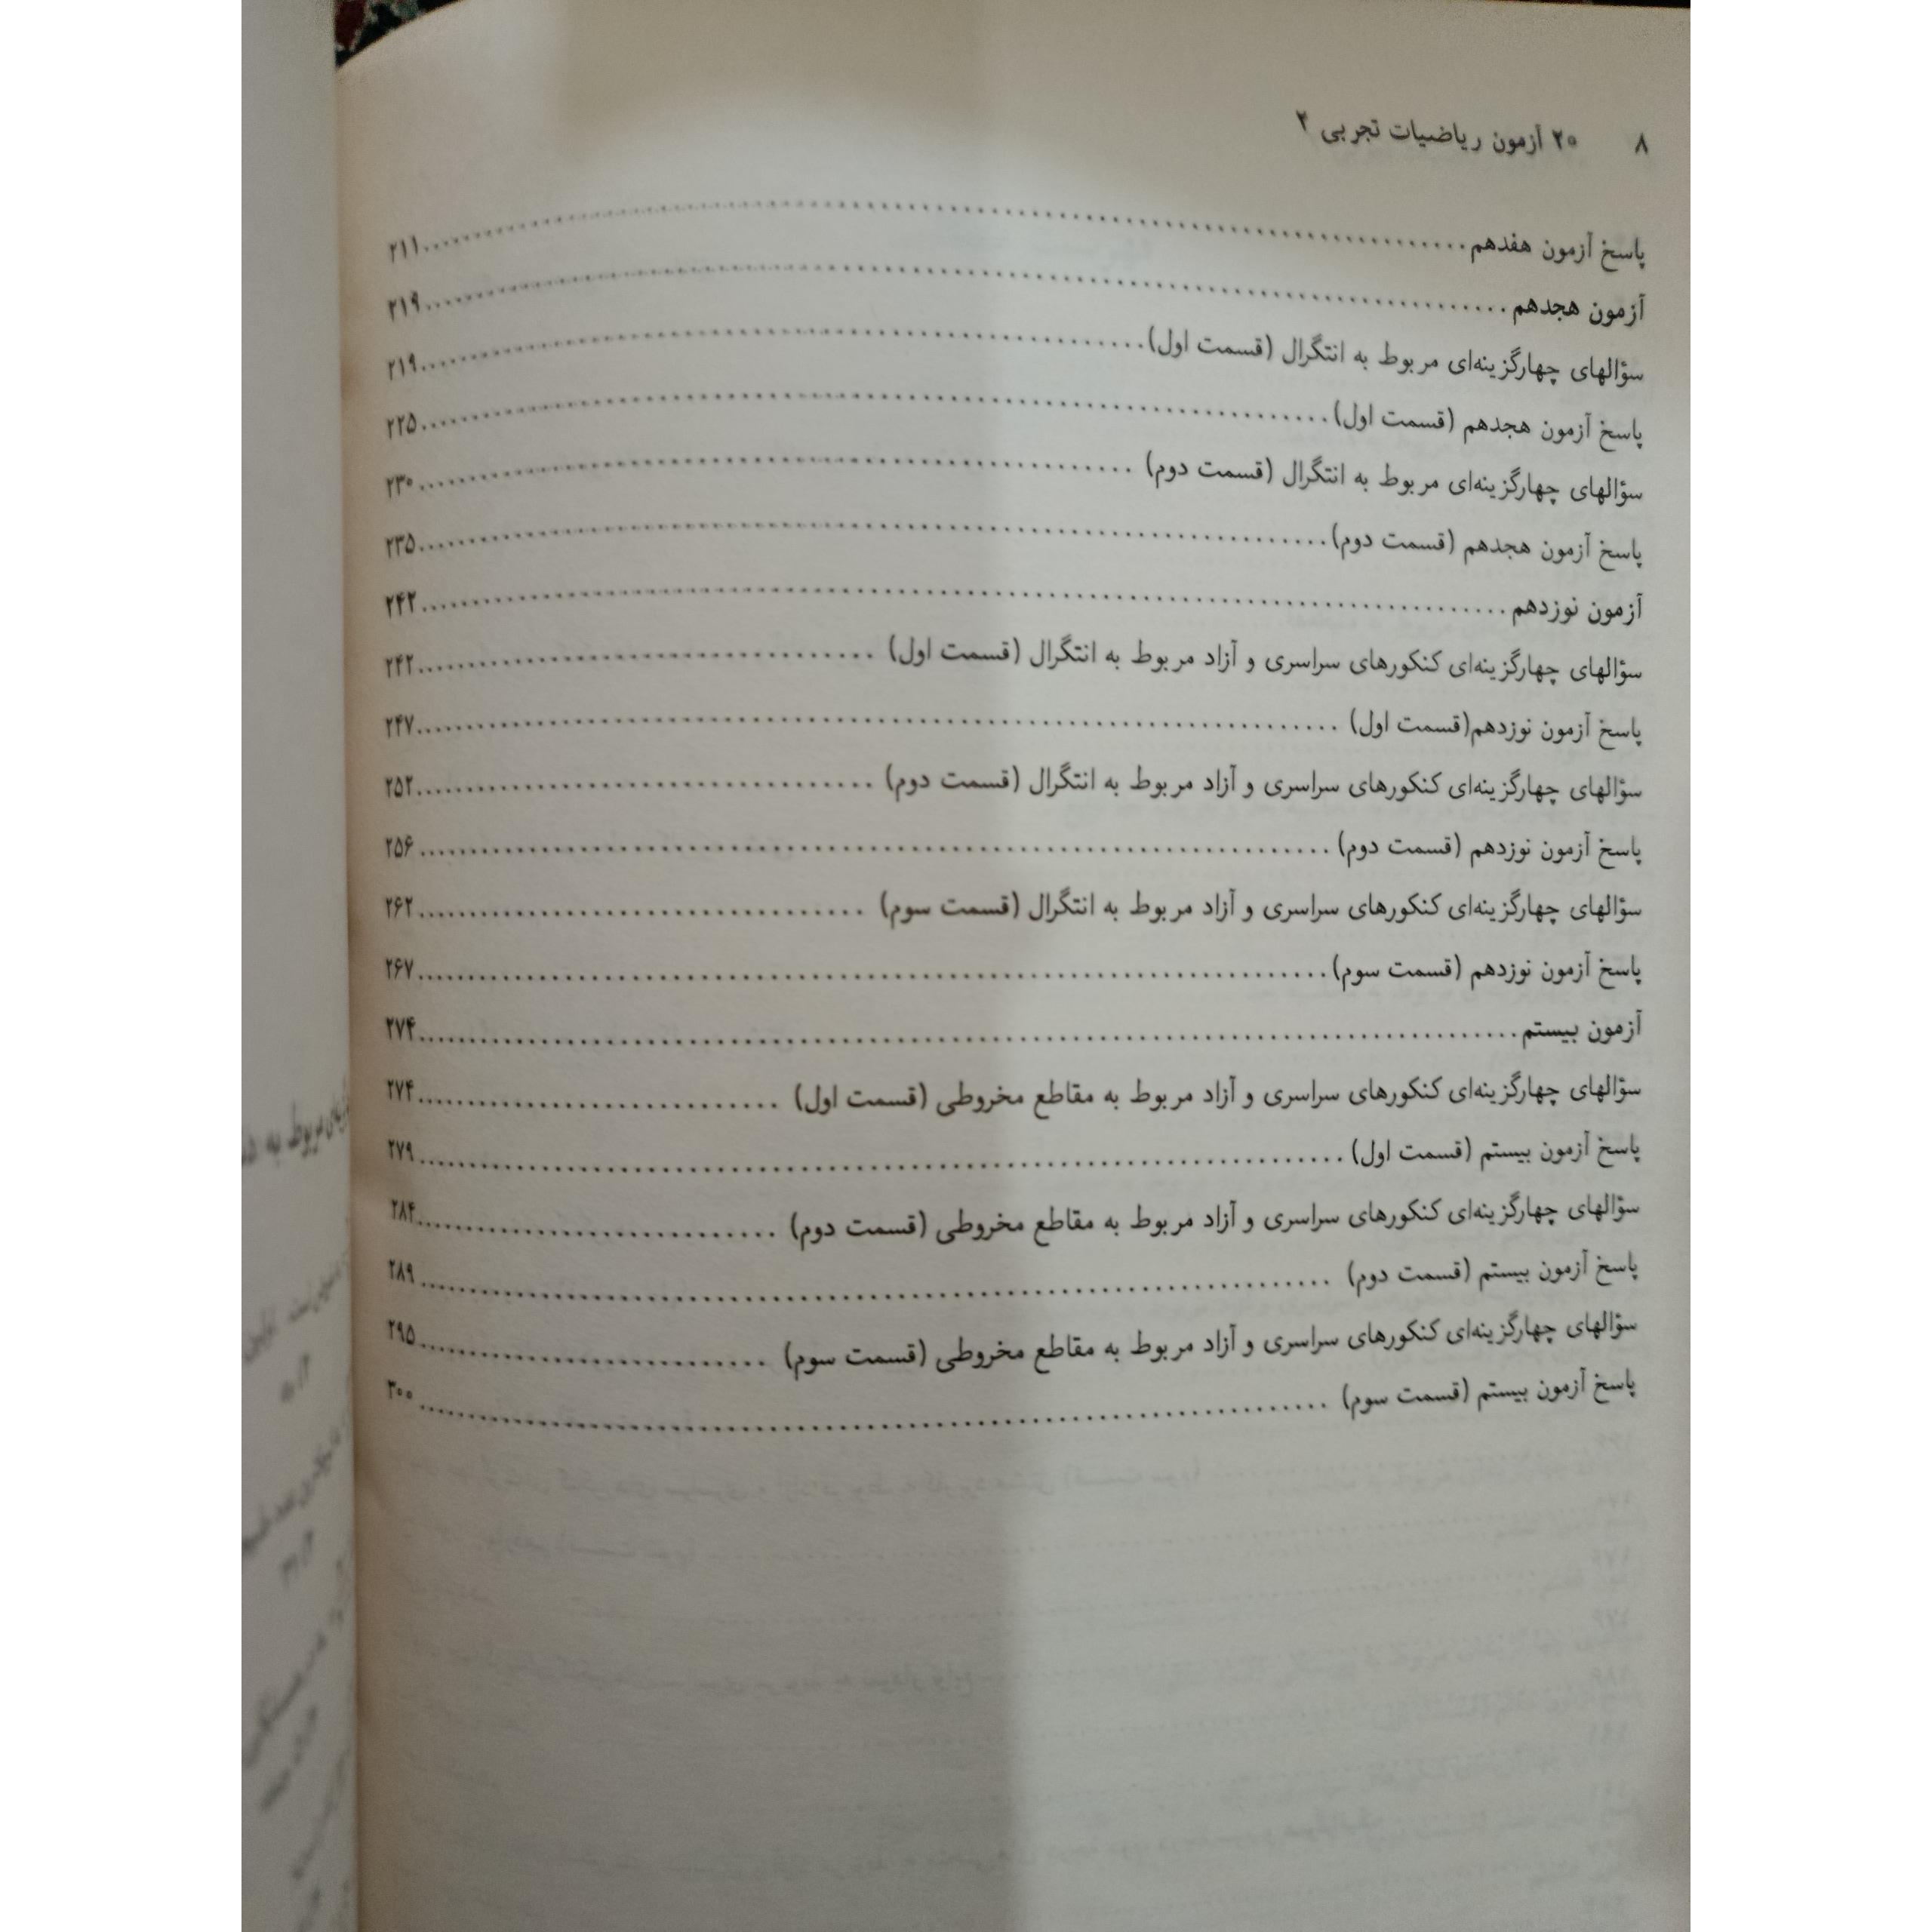 ۸ ۲۰ آزمون ریاضیات تجربی ۲
پاسخ آزمون هفدهم ........ ۲۱۱
آزمون هجدهم ........ ۲۱۹
سؤالهای چهارگزینه‌ای مربوط به انتگرال (قسمت اول) ........ ۲۱۹
پاسخ آزمون هجدهم (قسمت اول) ........ ۲۲۵
سؤالهای چهارگزینه‌ای مربوط به انتگرال (قسمت دوم) ........ ۲۳۰
پاسخ آزمون هجدهم (قسمت دوم) ........ ۲۳۵
آزمون نوزدهم ........ ۲۴۲
سؤالهای چهارگزینه‌ای کنکورهای سراسری و آزاد مربوط به انتگرال (قسمت اول) ........ ۲۴۲
پاسخ آزمون نوزدهم(قسمت اول) ........ ۲۴۷
سؤالهای چهارگزینه‌ای کنکورهای سراسری و آزاد مربوط به انتگرال (قسمت دوم) ........ ۲۵۲
پاسخ آزمون نوزدهم (قسمت دوم) ........ ۲۵۶
سؤالهای چهارگزینه‌ای کنکورهای سراسری و آزاد مربوط به انتگرال (قسمت سوم) ........ ۲۶۲
پاسخ آزمون نوزدهم (قسمت سوم) ........ ۲۶۷
آزمون بیستم ........ ۲۷۴
سؤالهای چهارگزینه‌ای کنکورهای سراسری و آزاد مربوط به مقاطع مخروطی (قسمت اول) ........ ۲۷۴
پاسخ آزمون بیستم (قسمت اول) ........ ۲۷۹
سؤالهای چهارگزینه‌ای کنکورهای سراسری و آزاد مربوط به مقاطع مخروطی (قسمت دوم) ........ ۲۸۴
پاسخ آزمون بیستم (قسمت دوم) ........ ۲۸۹
سؤالهای چهارگزینه‌ای کنکورهای سراسری و آزاد مربوط به مقاطع مخروطی (قسمت سوم) ........ ۲۹۵
پاسخ آزمون بیستم (قسمت سوم) ........ ۳۰۰
مربوط به